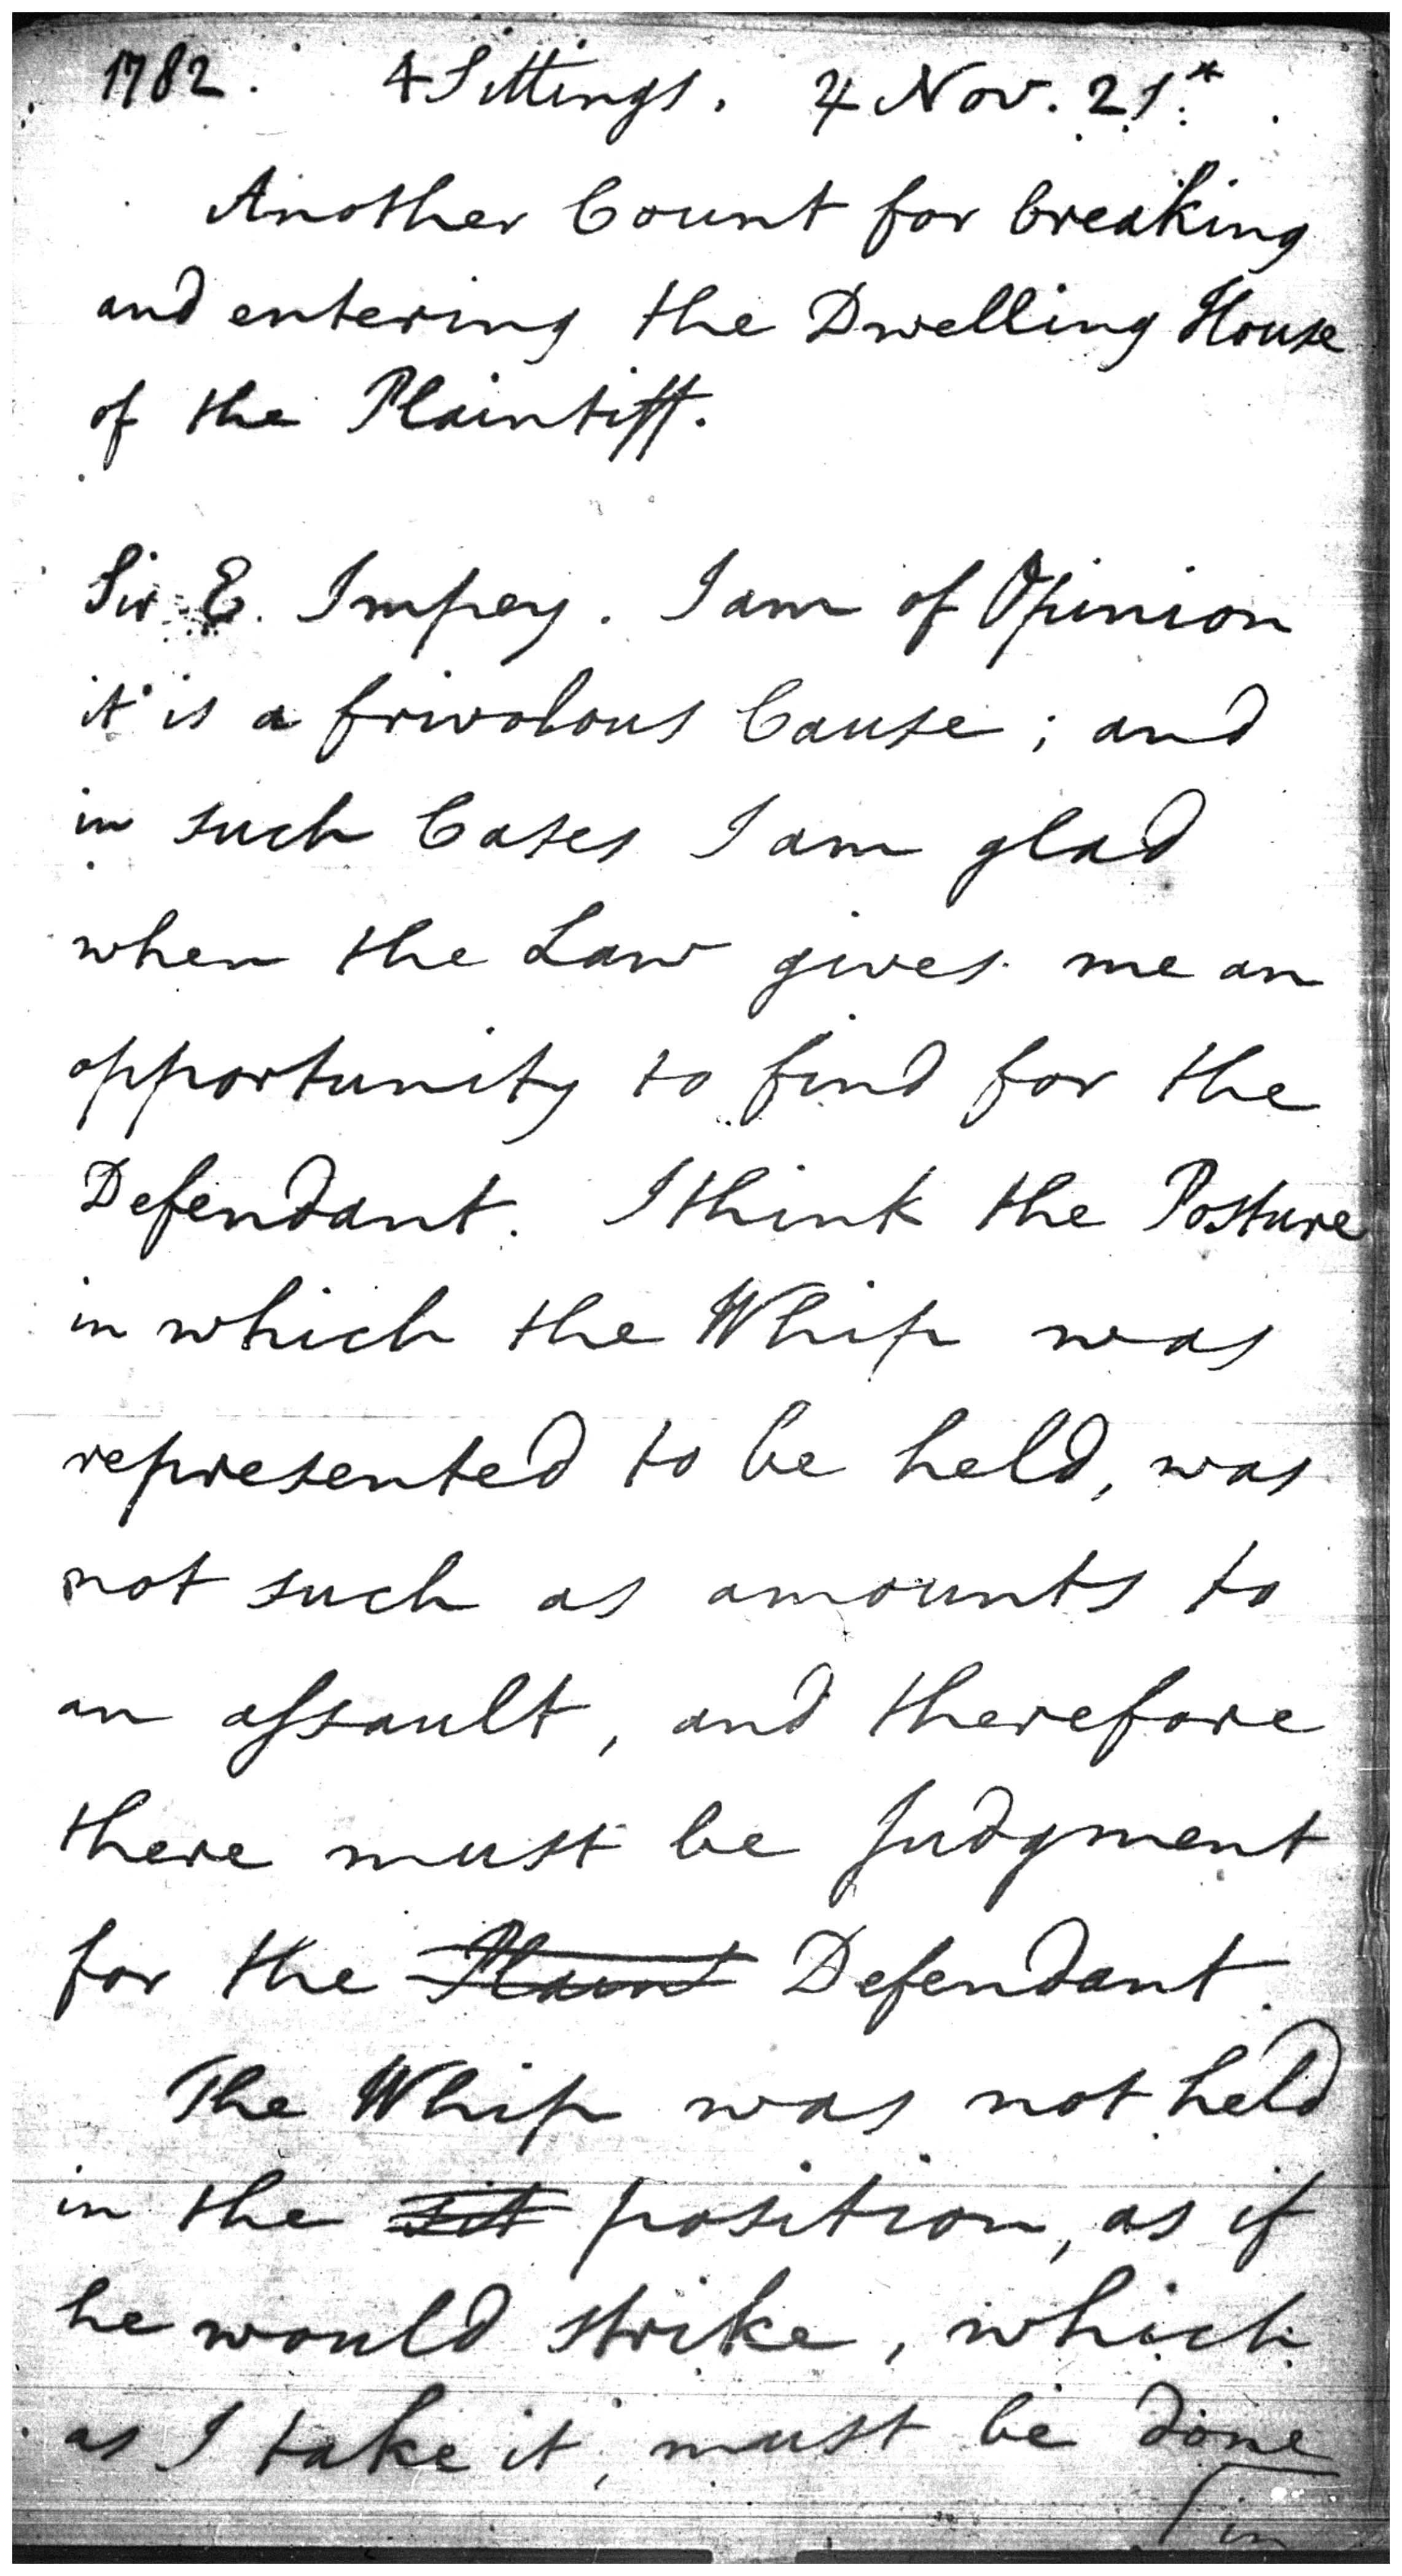 1782. 4 Sittings. ♃ Nov. 21st.
Another Count for breaking
and entering the Dwelling House
of the Plaintiff.
Sir E. Impey. I am of Opinion
it is a frivolous Cause; and
in such Cases I am glad
when the Law gives me an
opportunity to find for the
Defendant. I think the Posture
in which the Whip was
represented to be held, was
not such as amounts to
an assault, and therefore
there must be Judgment
for the Plaint Defendant.
The Whip was not held
in the sit position, as if
he would strike, which
as I take it, must be done
in